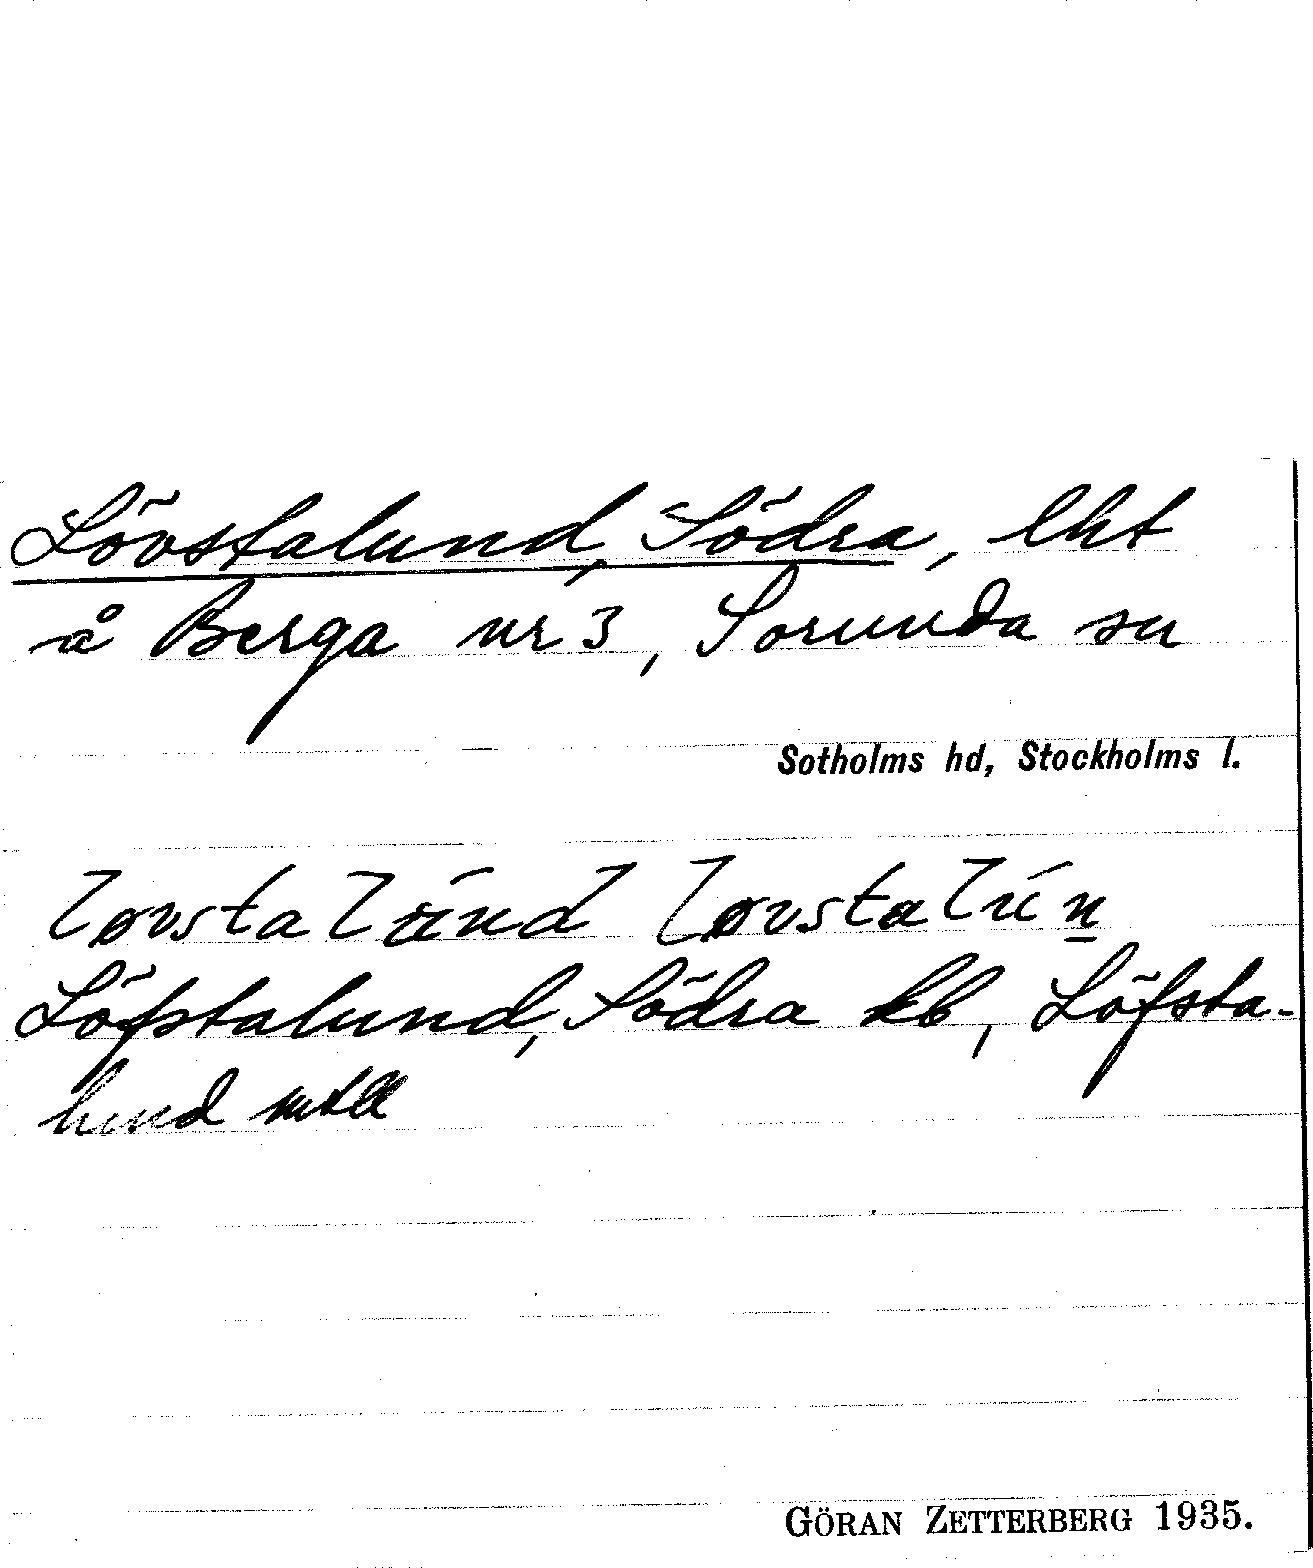 Lövstalund, Södra, lht
å Berga nr 3, Sorunda sn
Sotholms hd, Stockholms l.
løvstalund løvstalún
Löfstalund, Södra kb, Löfsta-
lund mtll
GÖRAN ZETTERBERG 1935.